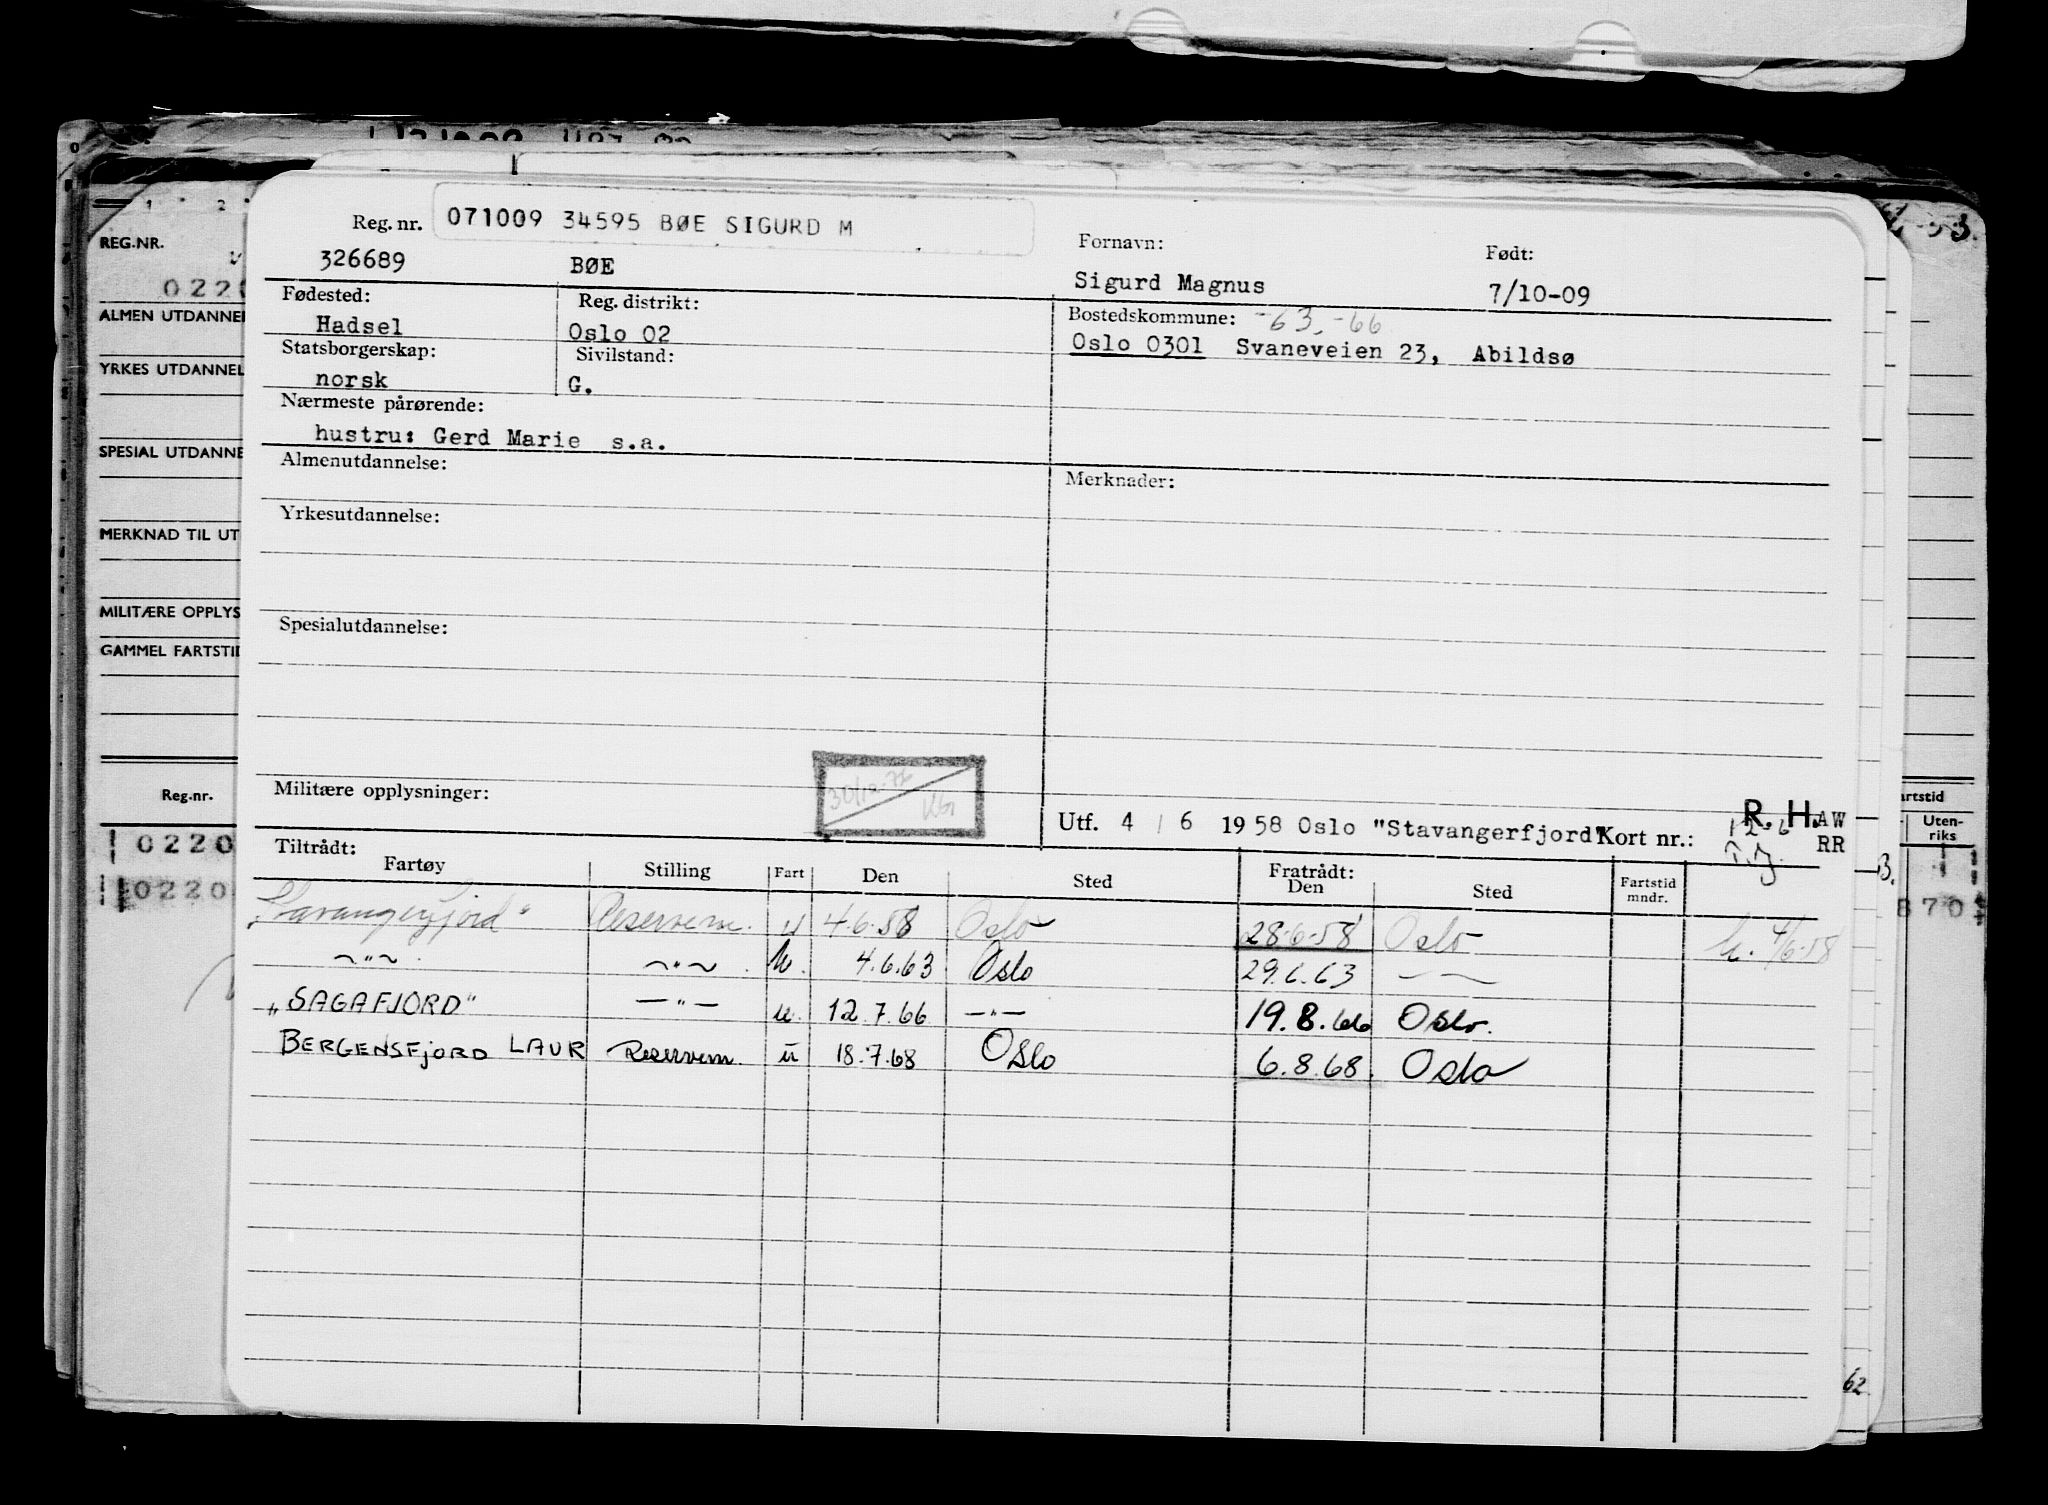 REG.NR.
ALMEN UTDANNE
YRKES UTDANNEL
SPESIAL UTDANNE
MERKNAD TIL UT
MILITÆRE OPPLYS
GAMMEL FARTSTID
Reg.nr.
0220
0220
Reg. nr. 071009 34595 BØE SIGURD M
326689 BØE
Fornavn: Født:
Sigurd Magnus 7/10-09
Fødested: Reg. distrikt: Bostedskommune: -63,-66
Hadsel Oslo 02 Oslo 0301 Svaneveien 23, Abildsø
Statsborgerskap: Sivilstand:
norsk G.
Nærmeste pårørende:
hustru: Gerd Marie s.a.
Almenutdannelse: Merknader:
Yrkesutdannelse:
Spesialutdannelse:
Militære opplysninger:
30/12-76
Utf. 4 / 6 1958 Oslo "Stavangerfjord" Kort nr.:
R. H. AW
RR
Tiltrådt: Fratrådt:
Fartøy Stilling Fart Den Sted Den Sted Fartstid mndr.
"Stavangerfjord" Reservem. u 4.6.58 Oslo 28-6-58 Oslo 4/6-58
—"— —"— u. 4.6.63 Oslo 29.6.63 —
"SAGAFJORD" —"— u. 12.7.66 —"— 19.8.66 Oslo.
BERGENSFJORD LAUR Reservem. u 18.7.68 Oslo 6.8.68. Oslo
artstid
Uten-
riks
870
62